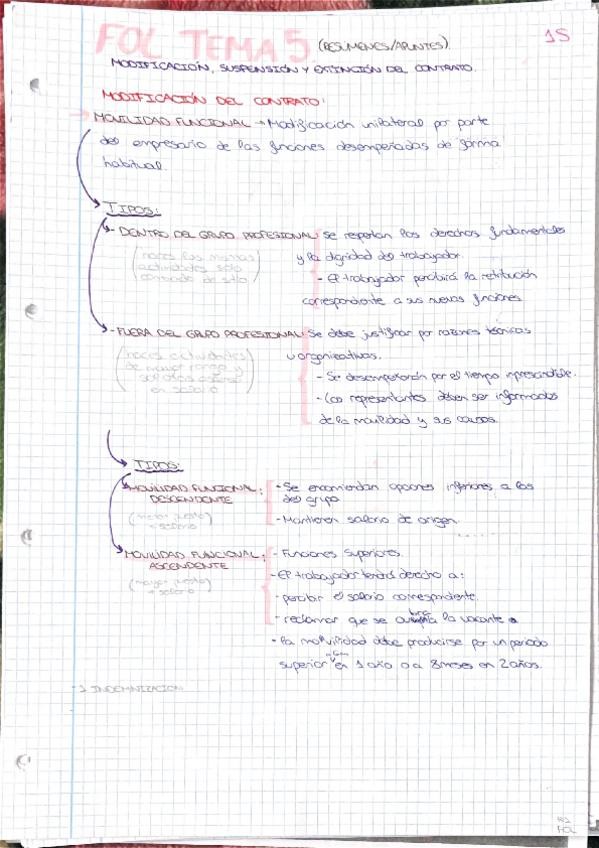 FOL TEMA 5 (RESÚMENES/APUNTES). 1S
MODIFICACIÓN, SUSPENSIÓN Y EXTINCIÓN DEL CONTRATO.
MODIFICACIÓN DEL CONTRATO:
→ MOVILIDAD FUNCIONAL → Modificación unilateral por parte
del empresario de las funciones desempeñadas de forma
habitual.
TIPOS:
- DENTRO DEL GRUPO PROFESIONAL: Se respetan los derechos fundamentales
y la dignidad del trabajador.
(haces las mismas
actividades solo
- El trabajador percibirá la retribución
correspondiente a sus nuevas funciones
- FUERA DEL GRUPO PROFESIONAL: Se debe justificar por razones técnicas
u organizativas.
(haces actividades
de mayor rango y
en salario)
- Se desempeñarán por el tiempo imprescindible.
- Los representantes deben ser informados
de la movilidad y sus causas.
TIPOS:
MOVILIDAD FUNCIONAL DESCENDENTE:
(menor puesto
= salario)
- Se encomiendan opciones inferiores a las
del grupo
- Mantienen salario de origen.
MOVILIDAD FUNCIONAL ASCENDENTE:
(mayor puesto
+ salario)
- Funciones superiores.
- El trabajador tendrá derecho a:
- percibir el salario correspondiente.
- reclamar que se cubra la vacante
- la movilidad debe producirse por un periodo
superior a 6m en 1 año o a 8 meses en 2 años.
→ INDEMNIZACIÓN
FOL